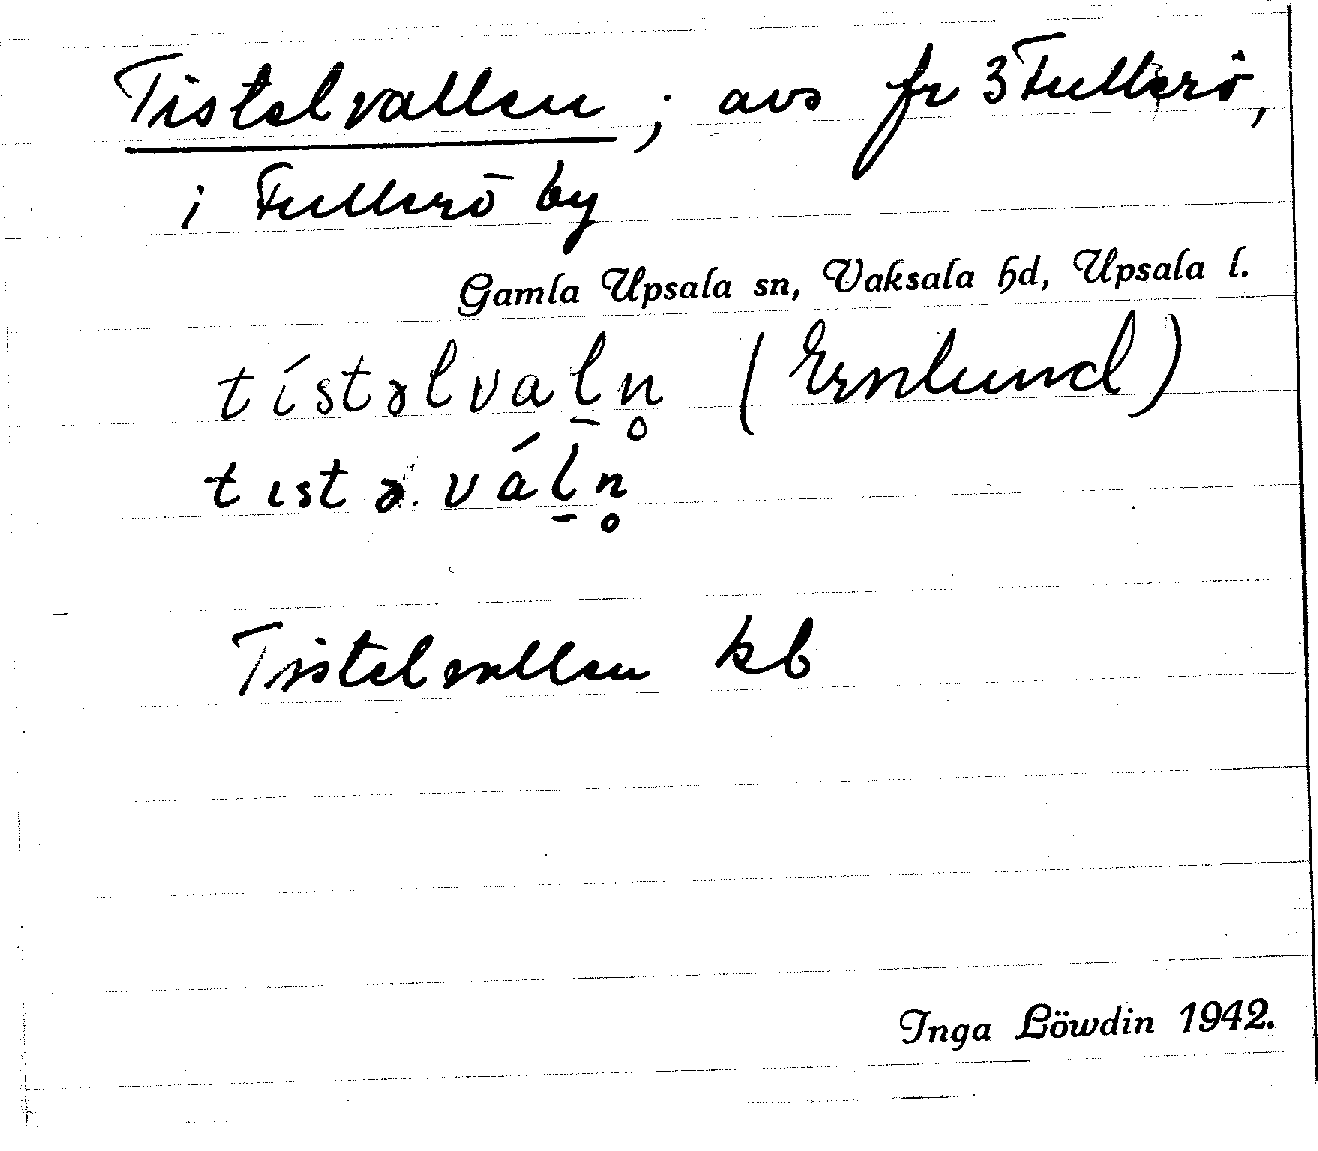 Tistelvallen ; avs fr 3 Fullerö,
i Fullerö by
Gamla Upsala sn, Vaksala hd, Upsala l.
tístəlval̠n̥ (Ernlund)
tıstə.vál̠n̥
Tistelvallen kb
Inga Löwdin 1942.